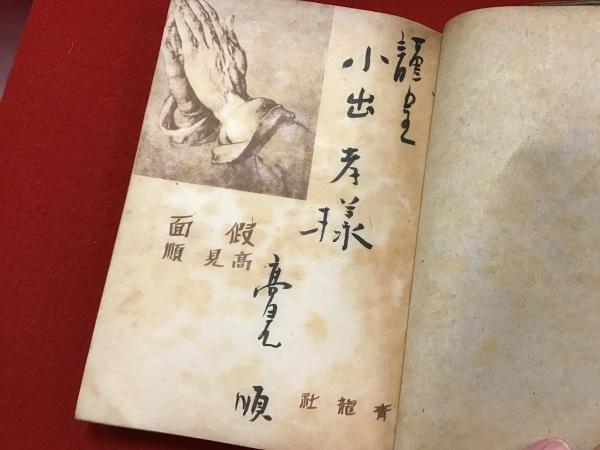 謹呈
小出 孝様
假面
高見順
高見 順
青龍社